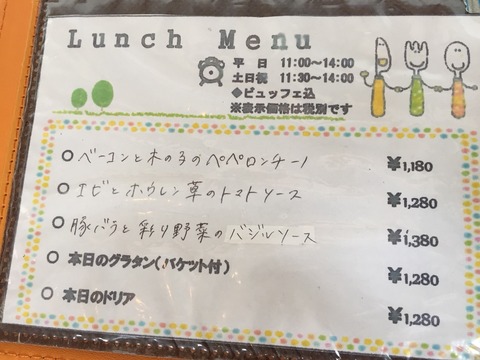 Lunch Menu
平 日 11:00～14:00
土日祝 11:30～14:00
◆ビュッフェ込
※表示価格は税別です
○ ベーコンと木の子のペペロンチーノ ¥1,180
○ エビとホウレン草のトマトソース ¥1,280
○ 豚バラと彩り野菜のバジルソース ¥1,380
○ 本日のグラタン(バケット付) ¥1,280
○ 本日のドリア ¥1,280